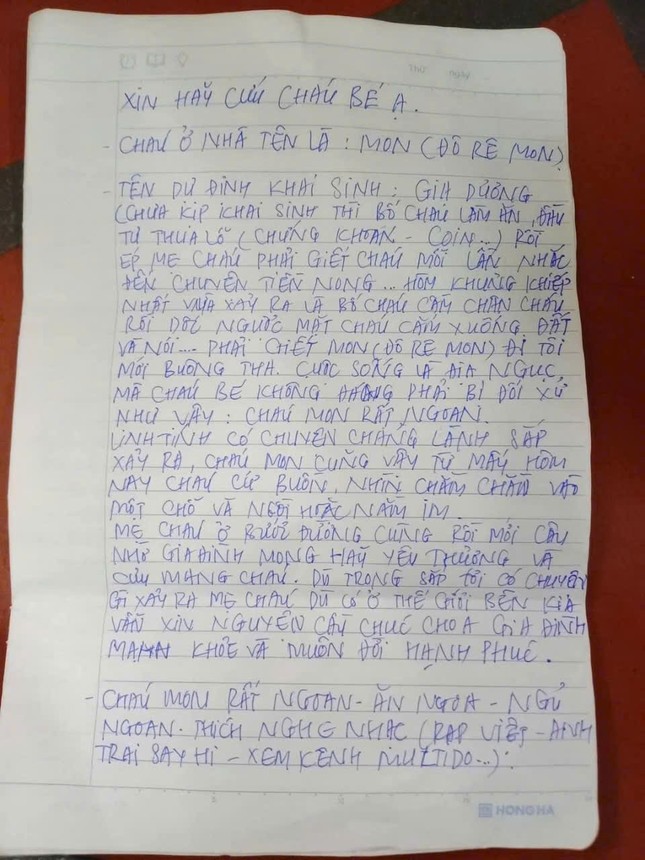 XIN HÃY CỨU CHÁU BÉ Ạ.
- CHÁU Ở NHÀ TÊN LÀ: MON (ĐÔ RÊ MON)
- TÊN DỰ ĐỊNH KHAI SINH: GIA DƯƠNG
(CHƯA KỊP KHAI SINH THÌ BỐ CHÁU LÀM ĂN, ĐẦU
TƯ THUA LỖ (CHỨNG KHOÁN - COIN...) RỒI
ÉP MẸ CHÁU PHẢI GIẾT CHÁU MỖI LẦN NHẮC
ĐẾN CHUYỆN TIỀN NONG... HÔM KHỦNG KHIẾP
NHẤT VỪA XẢY RA LÀ BỐ CHÁU CẦM CHÂN CHÁU
RỒI DỐC NGƯỢC MẶT CHÁU CẮM XUỐNG ĐẤT
VÀ NÓI.... PHẢI CHẾT MON (ĐÔ RÊ MON) ĐI TÔI
MỚI BUÔNG THA. CUỘC SỐNG LÀ ĐỊA NGỤC,
MÀ CHÁU BÉ KHÔNG ĐÁNG PHẢI BỊ ĐỐI XỬ
NHƯ VẬY: CHÁU MON RẤT NGOAN.
LINH TÍNH CÓ CHUYỆN CHẲNG LÀNH SẮP
XẢY RA, CHÁU MON CŨNG VẬY TỪ MẤY HÔM
NAY CHÁU CỨ BUỒN, NHÌN CHẰM CHẰM VÀO
MỘT CHỖ VÀ NGỒI HOẶC NẰM IM.
MẸ CHÁU Ở BƯỚC ĐƯỜNG CÙNG RỒI MỚI CẦU
NHỜ GIA ĐÌNH MONG HÃY YÊU THƯƠNG VÀ
CƯU MANG CHÁU. DÙ TRONG SẮP TỚI CÓ CHUYỆN
GÌ XẢY RA MẸ CHÁU DÙ CÓ Ở THẾ GIỚI BÊN KIA
VẪN XIN NGUYỆN CẦU CHÚC CHO A GIA ĐÌNH
MẠNH KHỎE VÀ MUÔN ĐỜI HẠNH PHÚC.
- CHÁU MON RẤT NGOAN - ĂN NGOA - NGỦ
NGOAN. THÍCH NGHE NHẠC (RAP VIỆT - ANH
TRAI SAY HI - XEM KÊNH MULTIDO...).
HONG HA